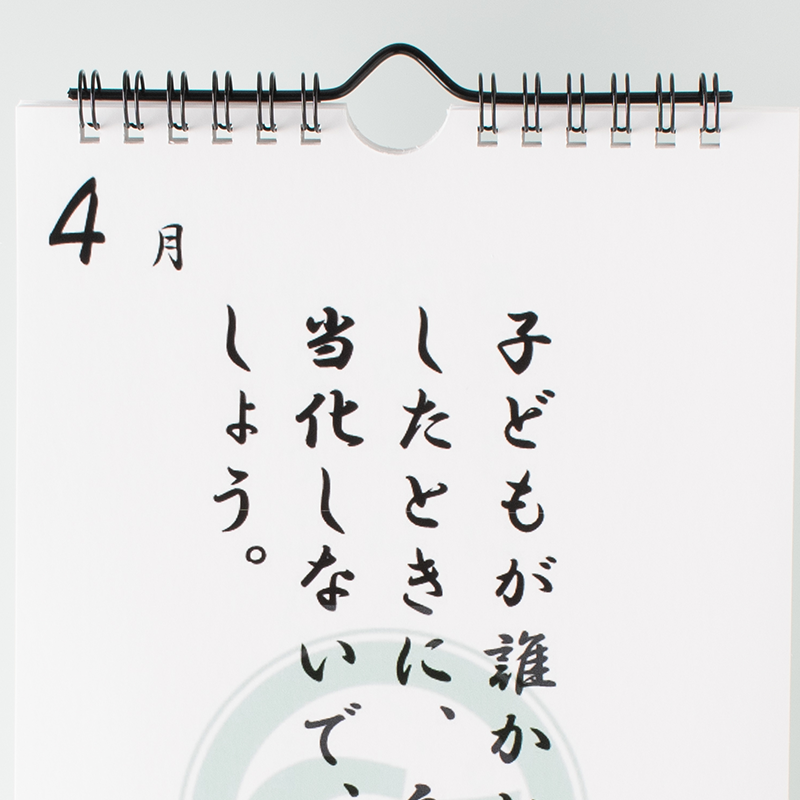 4月
子どもが誰か
したときに、
当化しないで、
しょう。